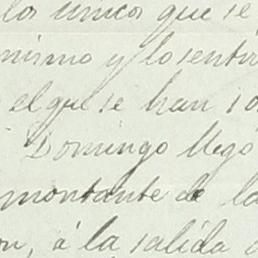 los únicos que se
mismo y lo senti
el que se han
Domingo llegó
montante de la
on, á la salida